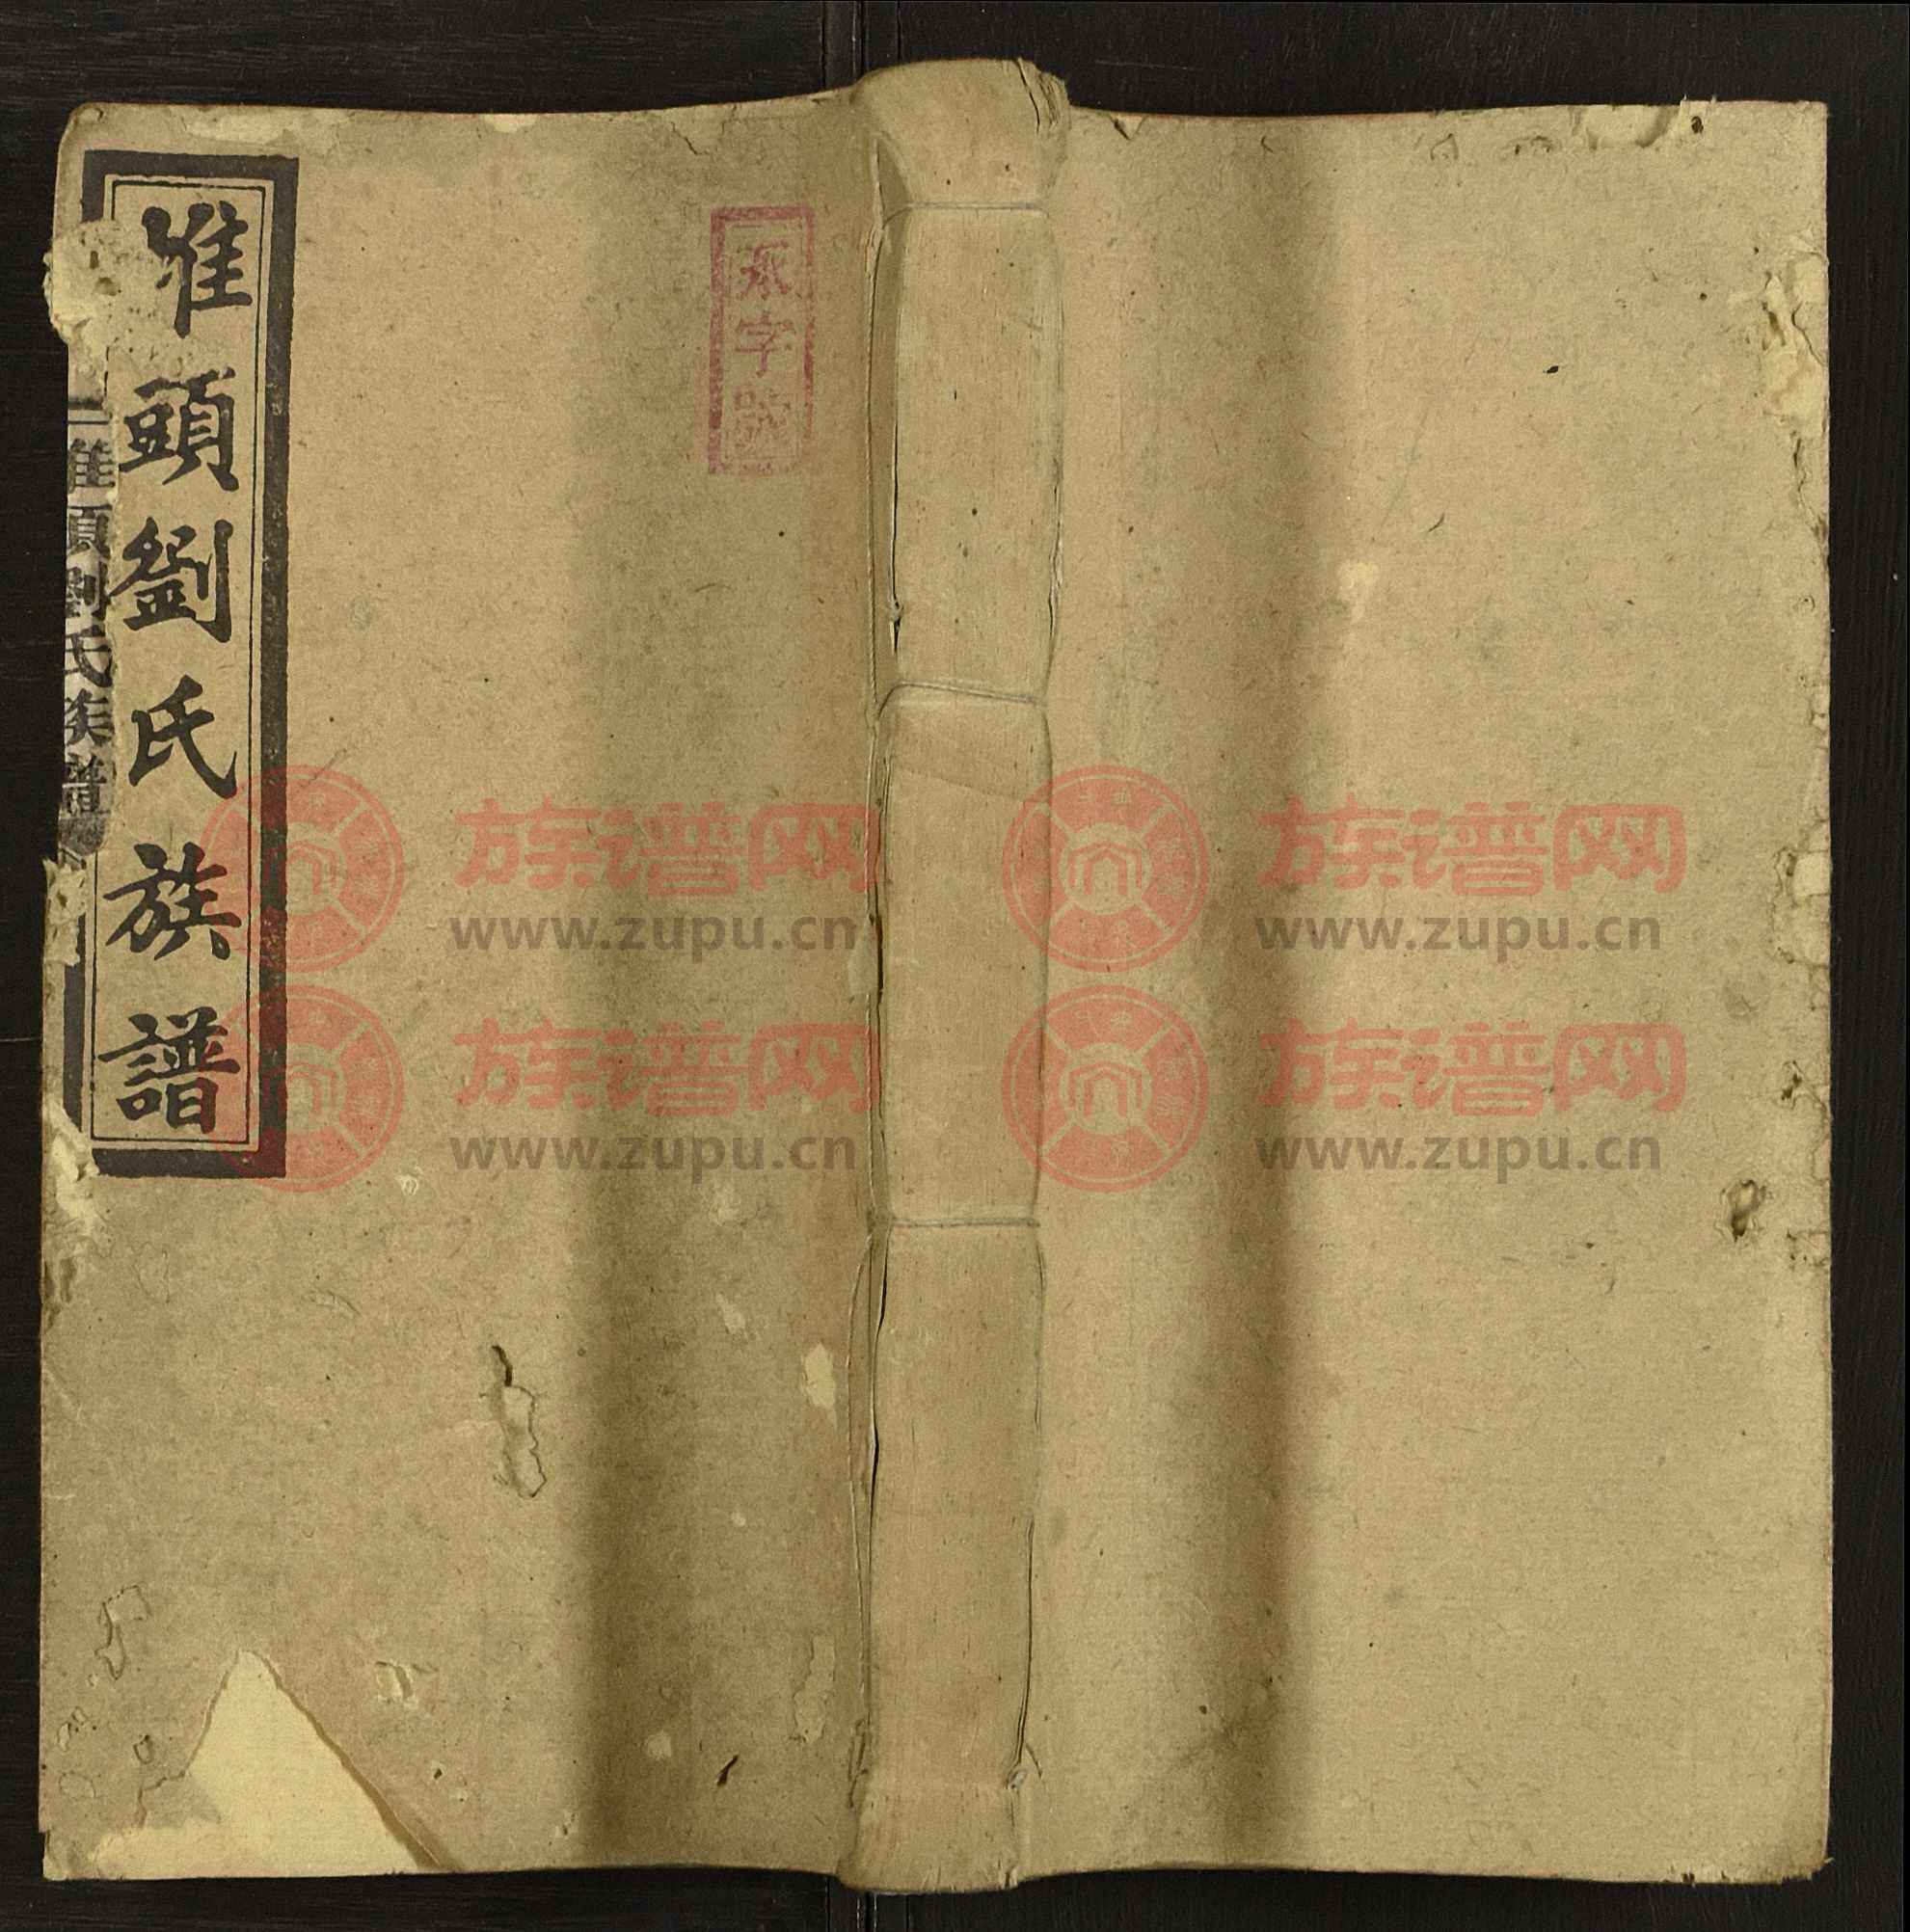 頭劉氏族譜
頭劉氏族譜
字號
族谱网
www.zupu.cn
族谱网
www.zupu.cn
族谱网
www.zupu.cn
族谱网
www.zupu.cn